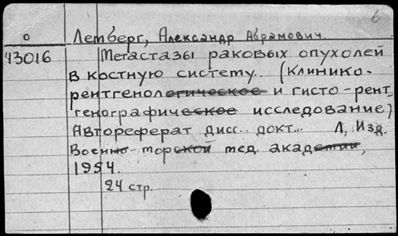 б
о Летберг, Александр Абрамович.
43016 Метастазы раковых опухолей
в костную систему. (Клинико-
рентгенологическое и гисто-рент
генографическое исследование)
Автореферат дисс. докт. Л, Изд.
Военно-морской мед. академии,
1954.
24 стр.